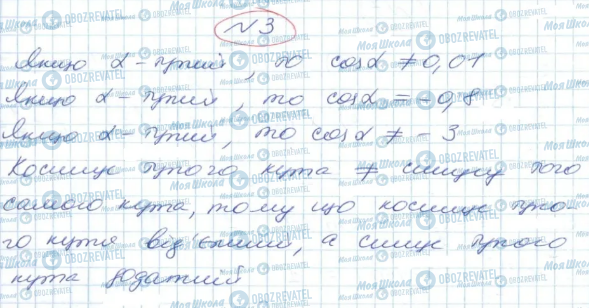 №3
Якщо α - тупий, то cosα ≠ 0,01
Якщо α - тупий, то cosα = -0,8
Якщо α - тупий, то cosα ≠ - 3
Косинус тупого кута ≠ синусу того
самого кута, тому що косинус тупо-
го кута від'ємний, а синус тупого
кута додатний